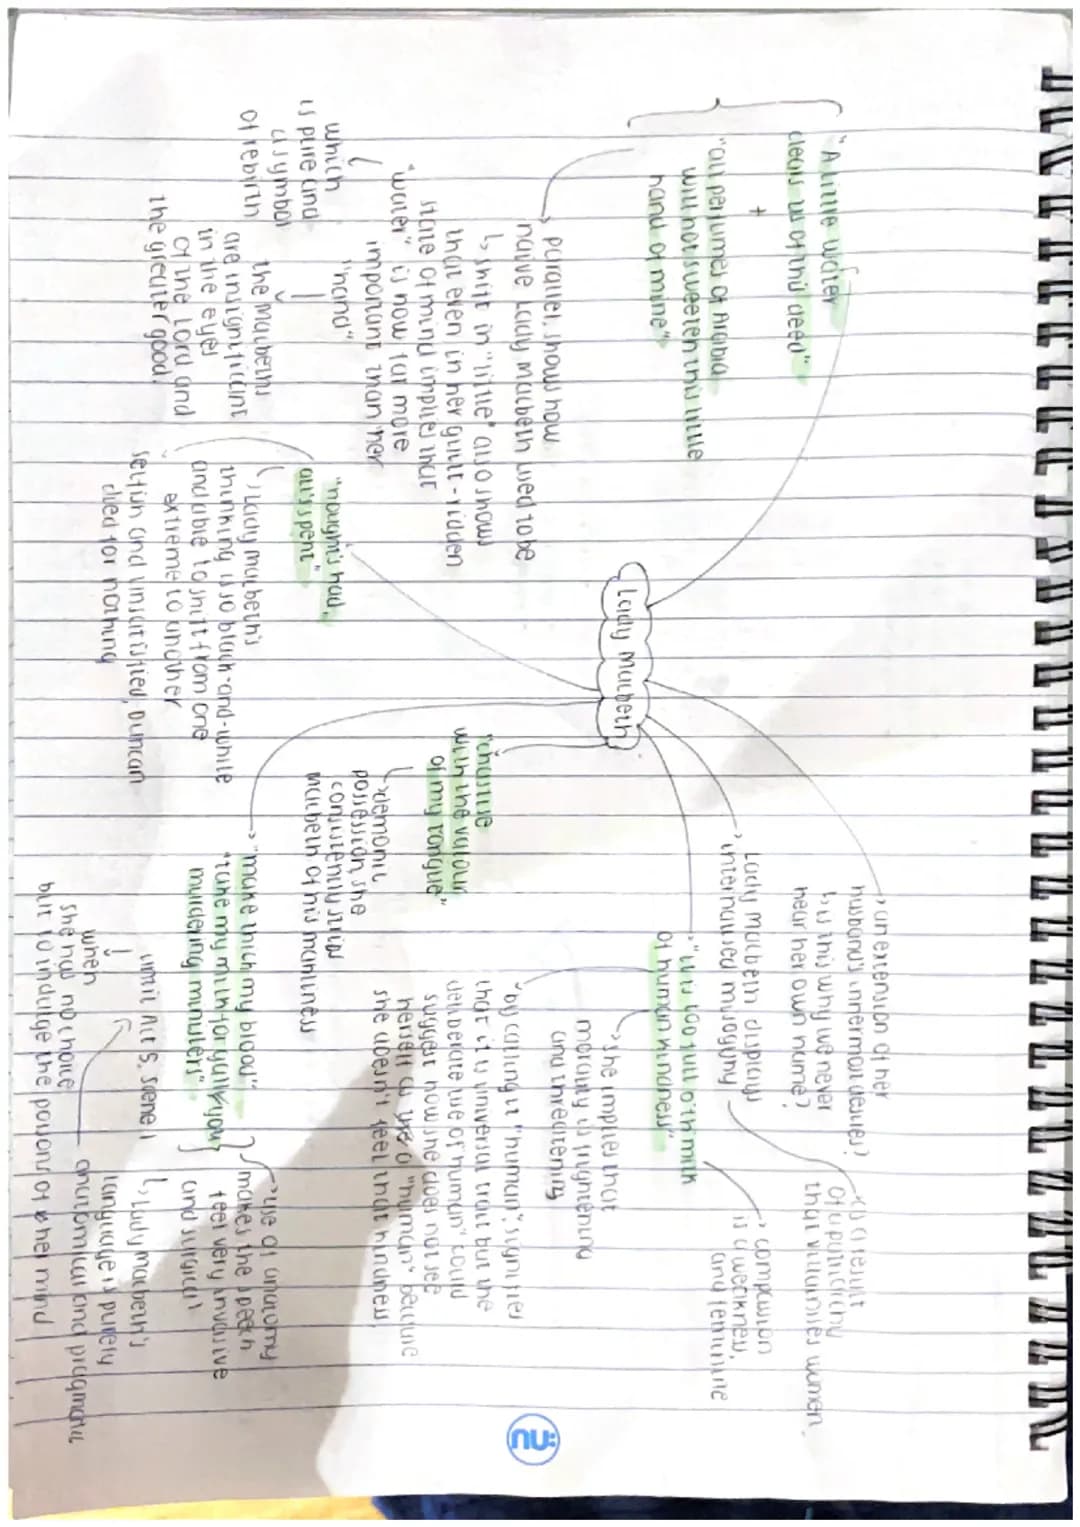 Lady Macbeth
"A little water
clears us of this deed"
+
"all perfumes of Arabia
will not sweeten this little
hand of mine"
parallel, shows how
naive Lady Macbeth used to be
↳ shift in "little" also shows
that even in her guilt-ridden
state of mind implies that
"water" is now far more
important than her
"hand"
which
is pure and
a symbol
of rebirth
the Macbeths
are insignificant
in the eyes
of the Lord and
the greater good.
"nought's had,
all's spent"
↳ Lady Macbeth's
thinking is so black-and-white
and able to shift from one
extreme to another
selfish and unsatisfied, Duncan
died for nothing
"chastise
with the valour
of my tongue"
↳ demonic
possession, she
consistently strips
Macbeth of his manliness
"make thick my blood"
"take my milk for gall, you
murdering ministers"
use of anatomy
makes the speech
feel very invasive
and surgical
↳ Lady Macbeth's
language is purely
anatomical and pragmatic
until Act 5, Scene 1
when
she has no choice
but to indulge the poisons of her mind
an extension of her
husband's innermost desires?
↳ is this why we never
hear her own name?
Lady Macbeth displays
internalised misogyny
as a result
of patriarchy
that villainises women.
"is too full o'th milk
of human kindness"
compassion
is a weakness,
and feminine
she implies that
morality is frightening
and threatening
by calling it "human", signifies
that it is universal trait but the
deliberate use of "human" could
suggest how she does not see
herself as "human" because
she doesn't feel that kindness.
nu